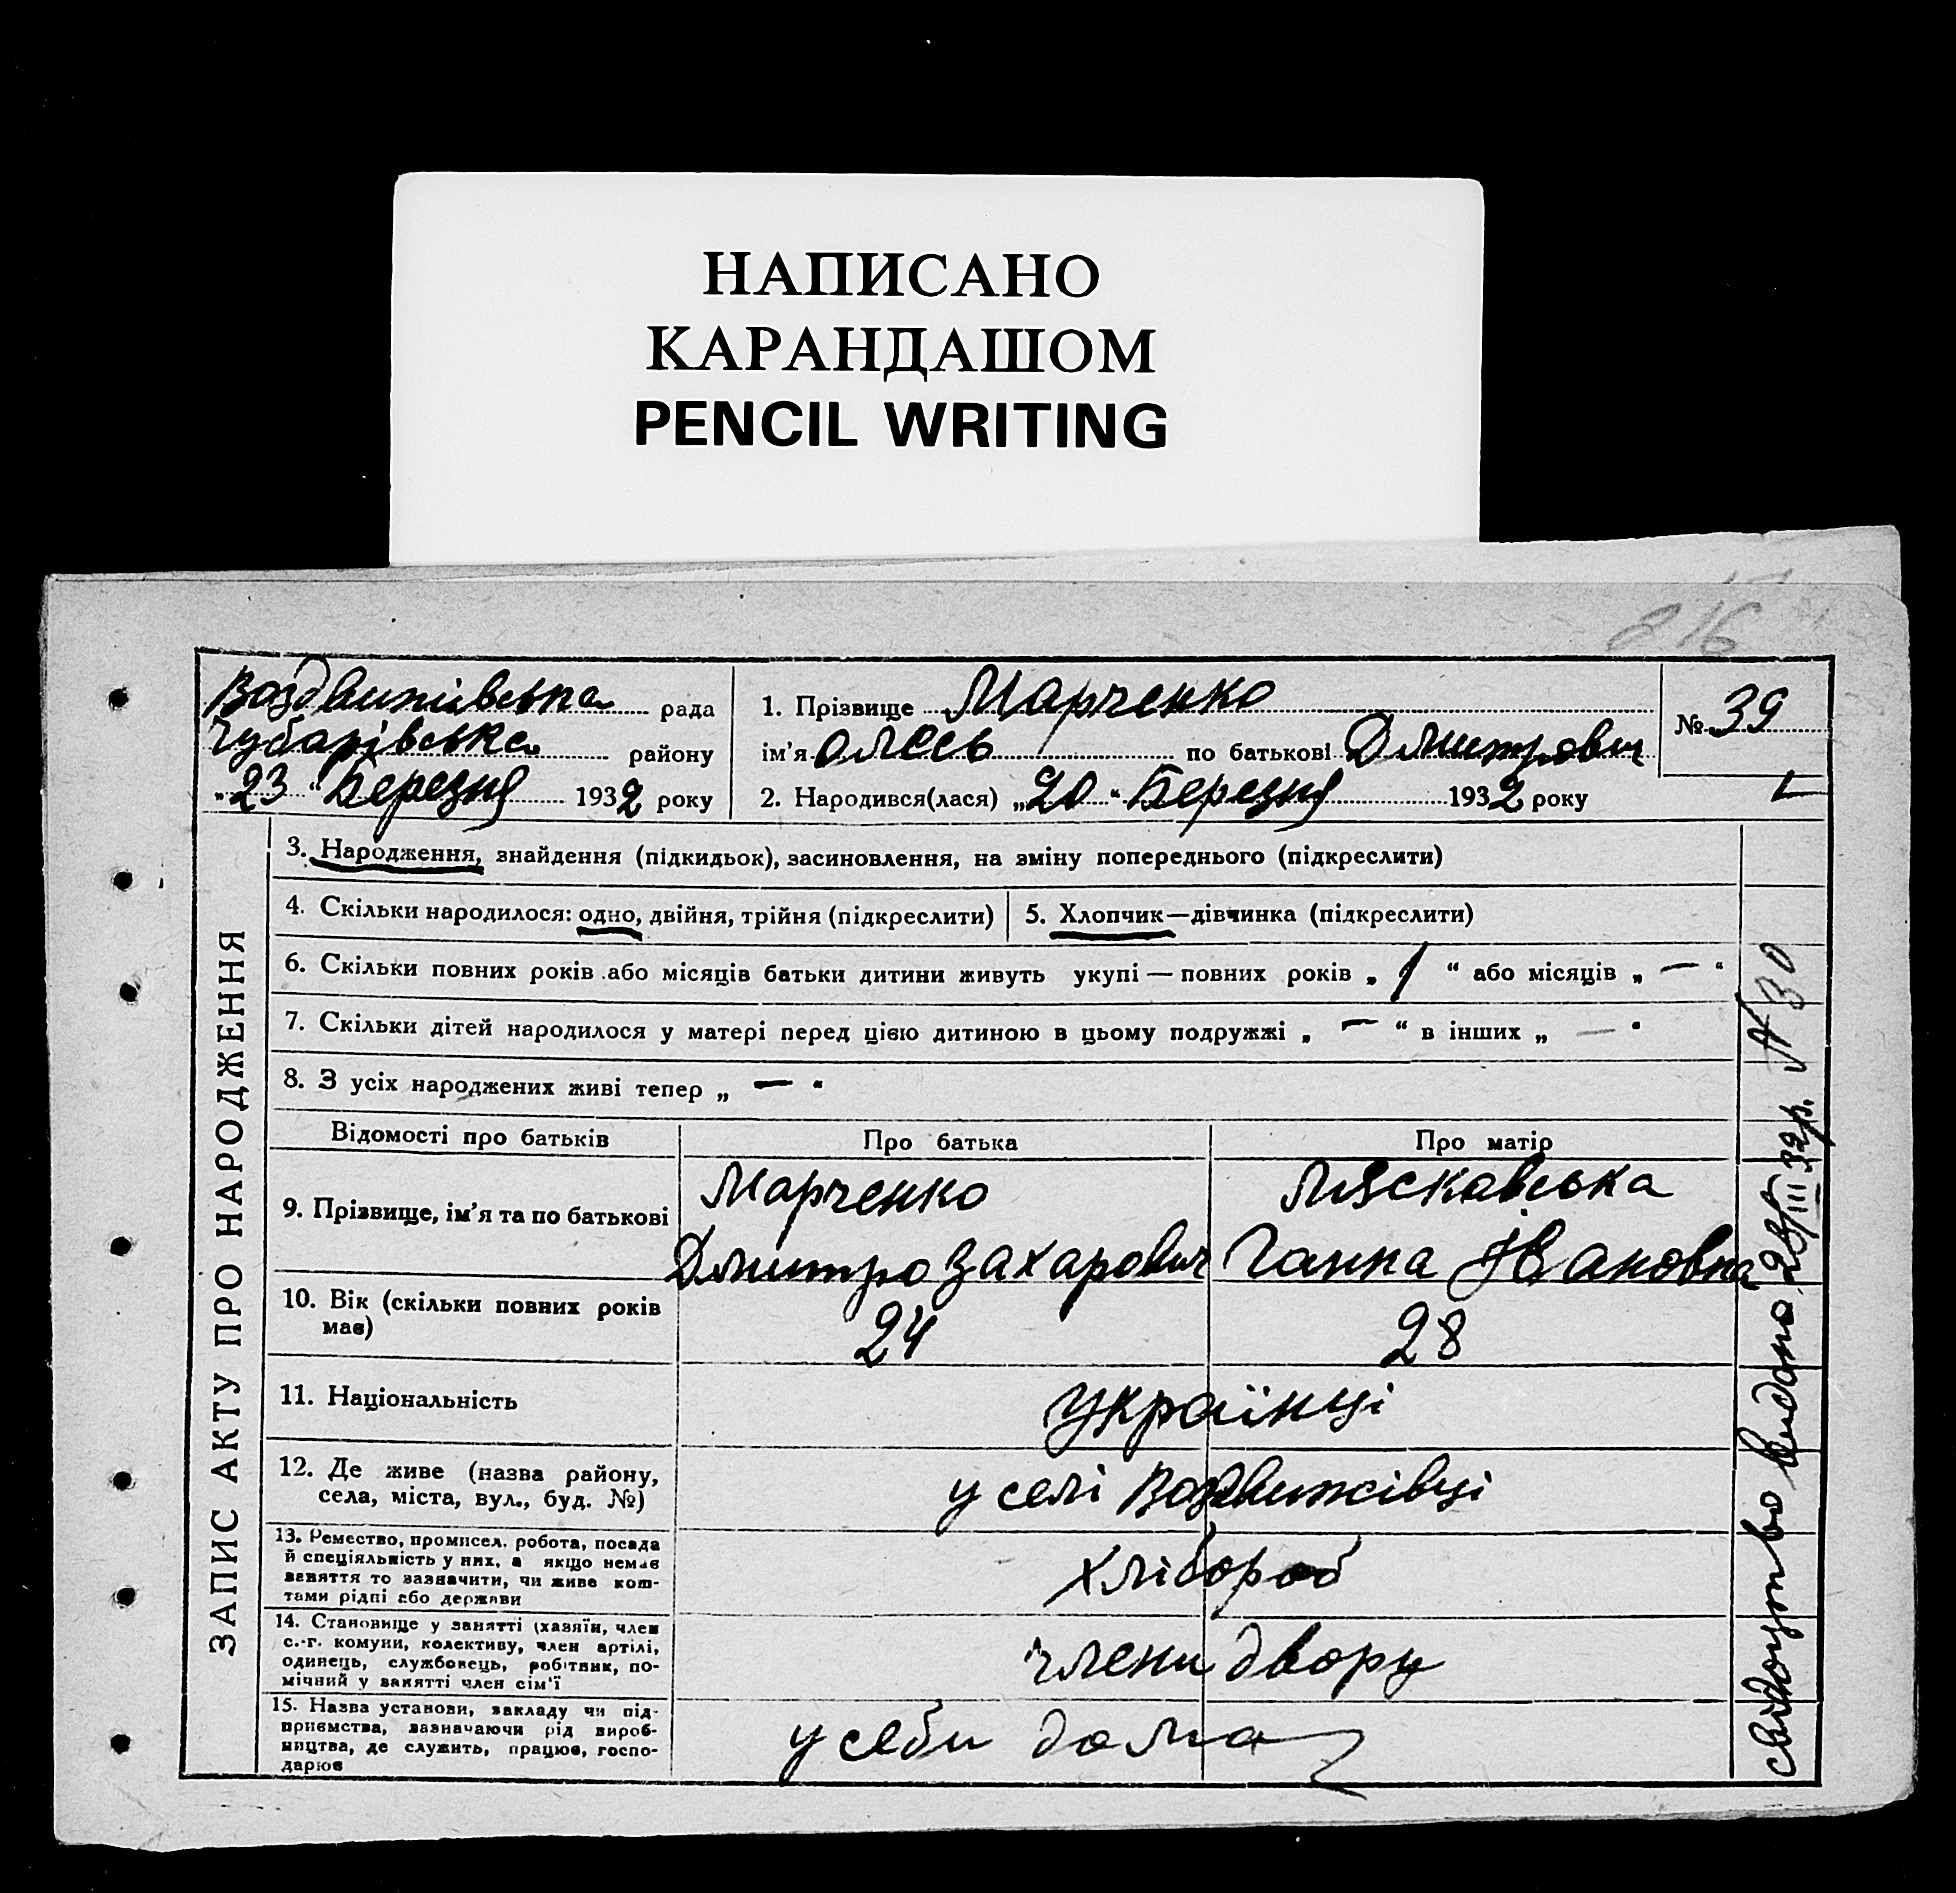 НАПИСАНО
КАРАНДАШОМ
PENCIL WRITING
216
Воздвижівська рада
Чубарівська району
„23“ Березня 1932 року
1. Прізвище Марченко
ім'я Олесь по батькові Дмитрович
2. Народився(лася) „20“ Березня 1932 року
№ 39
ЗАПИС АКТУ ПРО НАРОДЖЕННЯ
3. Народження, знайдення (підкидьок), засиновлення, на зміну попереднього (підкреслити)
4. Скільки народилося: одно, двійня, трійня (підкреслити)
5. Хлопчик—дівчинка (підкреслити)
6. Скільки повних років або місяців батьки дитини живуть укупі — повних років „ 1 “ або місяців „ — “
7. Скільки дітей народилося у матері перед цією дитиною в цьому подружжі „ — “ в інших „ — “
8. З усіх народжених живі тепер „ — “
Відомості про батьків
Про батька
Про матір
9. Прізвище, ім'я та по батькові
Марченко
Дмитро Захарович
Лясковська
Ганна Івановна
10. Вік (скільки повних років
має)
24
28
11. Національність
Українці
12. Де живе (назва району,
села, міста, вул., буд. №)
у селі Воздвижівці
13. Ремество, промисел, робота, посада
й спеціяльність у них, а якщо немає
заняття то зазначити, чи живе кош-
тами рідні або держави
хлібороб
14. Становище у занятті (хазяїн, член
с.-г. комуни, колективу, член артілі,
одинець, службовець, робітник, по-
мічний у занятті член сім'ї
члени двору
15. Назва установи, закладу чи під-
приємства, зазначаючи рід вироб-
ництва, де служить, працює, госпо-
дарює
у себи дома
свідоцтво видано 23/III 32 р. № 30